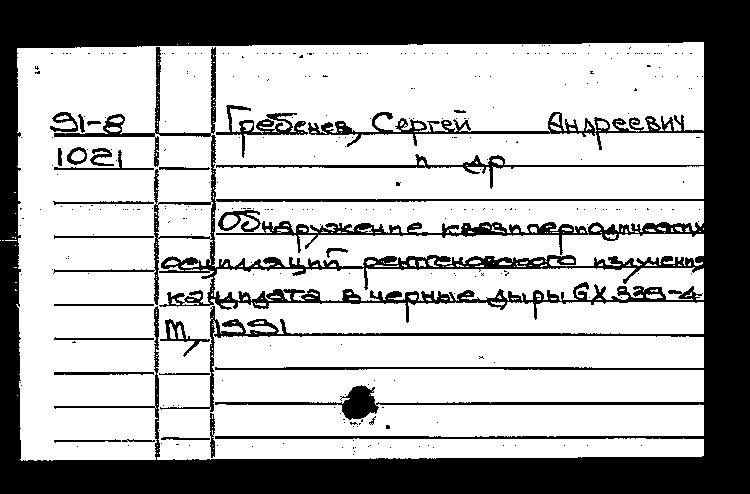 91-8 Гребенев, Сергей Андреевич
1021 и др.
Обнаружение квазипериодических
осцилляций рентгеновского излучения
кандидата в черные дыры GX 339-4
М, 1991